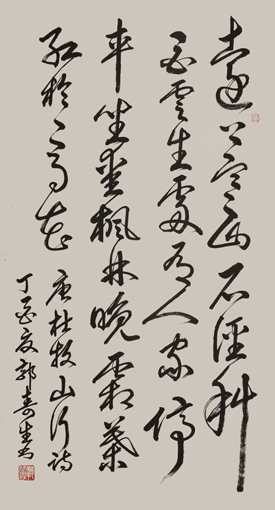 远上寒山石径斜
白云生处有人家停
车坐爱枫林晚霜叶
红于二月花
唐杜牧山行诗
丁酉夏郭寿生书